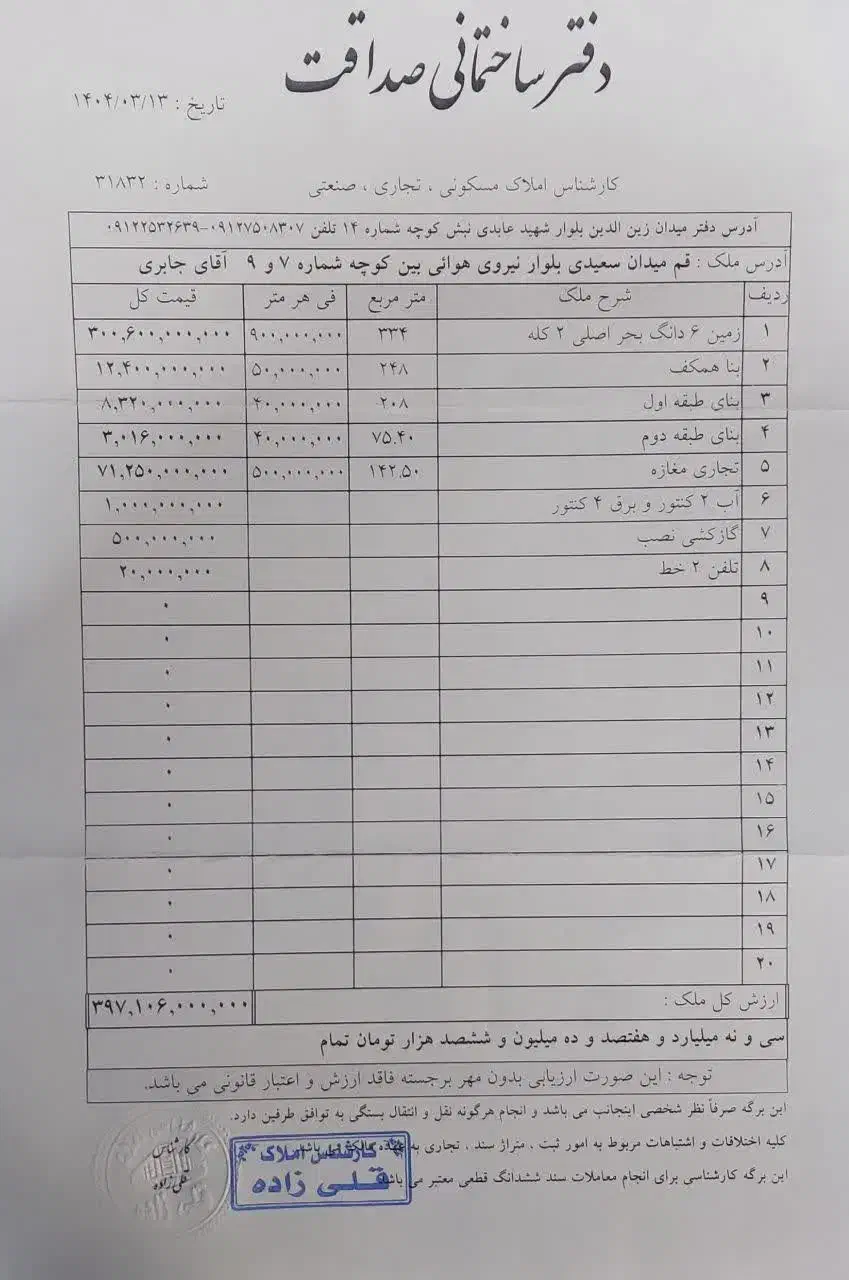 دفتر ساختمانی صداقت
تاریخ : ۱۴۰۴/۰۳/۱۳
کارشناس املاک مسکونی ، تجاری ، صنعتی
شماره : ۳۱۸۳۲
آدرس دفتر میدان زین الدین بلوار شهید عابدی نبش کوچه شماره ۱۴ تلفن ۰۹۱۲۷۵۰۸۳۰۷-۰۹۱۲۲۵۳۲۶۳۹
آدرس ملک : قم میدان سعیدی بلوار نیروی هوائی بین کوچه شماره ۷ و ۹ آقای جابری
ردیف شرح ملک متر مربع فی هر متر قیمت کل
۱ زمین ۶ دانگ بحر اصلی ۲ کله ۳۳۴ ۹۰۰,۰۰۰,۰۰۰ ۳۰۰,۶۰۰,۰۰۰,۰۰۰
۲ بنا همکف ۲۴۸ ۵۰,۰۰۰,۰۰۰ ۱۲,۴۰۰,۰۰۰,۰۰۰
۳ بنای طبقه اول ۲۰۸ ۴۰,۰۰۰,۰۰۰ ۸,۳۲۰,۰۰۰,۰۰۰
۴ بنای طبقه دوم ۷۵.۴۰ ۴۰,۰۰۰,۰۰۰ ۳,۰۱۶,۰۰۰,۰۰۰
۵ تجاری مغازه ۱۴۲.۵۰ ۵۰۰,۰۰۰,۰۰۰ ۷۱,۲۵۰,۰۰۰,۰۰۰
۶ آب ۲ کنتور و برق ۴ کنتور ۱,۰۰۰,۰۰۰,۰۰۰
۷ گازکشی نصب ۵۰۰,۰۰۰,۰۰۰
۸ تلفن ۲ خط ۲۰,۰۰۰,۰۰۰
۹ ۰
۱۰ ۰
۱۱ ۰
۱۲ ۰
۱۳ ۰
۱۴ ۰
۱۵ ۰
۱۶ ۰
۱۷ ۰
۱۸ ۰
۱۹ ۰
۲۰ ۰
ارزش کل ملک : ۳۹۷,۱۰۶,۰۰۰,۰۰۰
سی و نه میلیارد و هفتصد و ده میلیون و ششصد هزار تومان تمام
توجه : این صورت ارزیابی بدون مهر برجسته فاقد ارزش و اعتبار قانونی می باشد.
این برگه صرفاً نظر شخصی اینجانب می باشد و انجام هرگونه نقل و انتقال بستگی به توافق طرفین دارد.
کلیه اختلافات و اشتباهات مربوط به امور ثبت ، متراژ سند ، تجاری به عهده مالک می باشد
این برگه کارشناسی برای انجام معاملات سند ششدانگ قطعی معتبر می باشد
کارشناس املاک
قلی زاده
کارشناس
قلی زاده